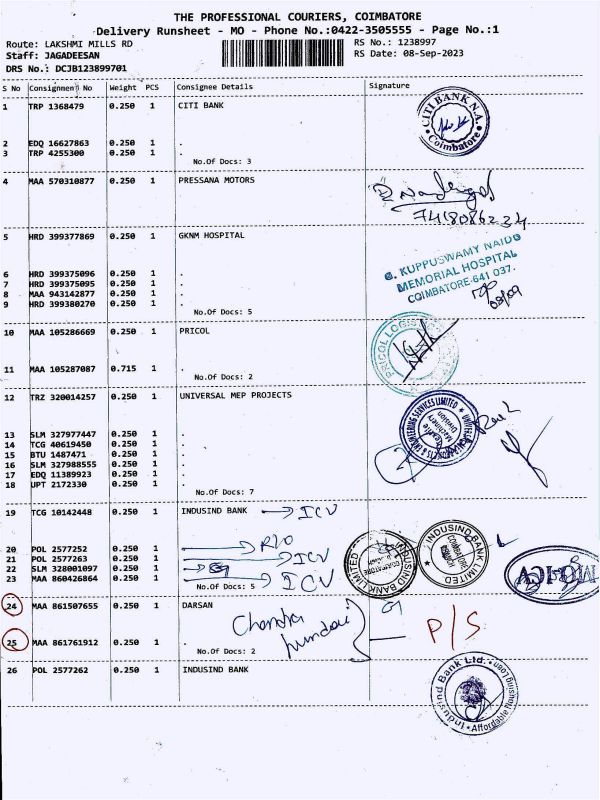 THE PROFESSIONAL COURIERS, COIMBATORE
Delivery Runsheet - MO - Phone No.:0422-3505555 - Page No.:1
Route: LAKSHMI MILLS RD RS No.: 1238997
Staff: JAGADEESAN RS Date: 08-Sep-2023
DRS No.: DCJB123899701
S No Consignment No Weight PCS Consignee Details Signature
1 TRP 1368479 0.250 1 CITI BANK
CITI BANK N.A.
Coimbatore
2 EDQ 16627863 0.250 1 .
3 TRP 4255300 0.250 1 .
No.Of Docs: 3
4 MAA 570310877 0.250 1 PRESSANA MOTORS
7418086234
5 HRD 399377869 0.250 1 GKNM HOSPITAL
G. KUPPUSWAMY NAIDU
MEMORIAL HOSPITAL
COIMBATORE-641 037.
6 HRD 399375096 0.250 1 .
7 HRD 399375095 0.250 1 .
8 MAA 943142877 0.250 1 .
9 HRD 399380270 0.250 1 .
No.Of Docs: 5
10 MAA 105286669 0.250 1 PRICOL
PRICOL LOGISTICS
11 MAA 105287087 0.715 1 .
No.Of Docs: 2
12 TRZ 320014257 0.250 1 UNIVERSAL MEP PROJECTS
UNIVERSAL MEP PROJECTS & ENGINEERING SERVICES LIMITED
Machinery
Division
13 SLM 327977447 0.250 1 .
14 TCG 40619450 0.250 1 .
15 BTU 1487471 0.250 1 .
16 SLM 327988555 0.250 1 .
17 EDQ 11389923 0.250 1 .
18 UPT 2172330 0.250 1 .
No.Of Docs: 7
19 TCG 10142448 0.250 1 INDUSIND BANK ICV
20 POL 2577252 0.250 1 .
21 POL 2577263 0.250 1 . ICV
22 SLM 328001097 0.250 1 .
23 MAA 860426864 0.250 1 . ICV
No.Of Docs: 5
INDUSIND BANK LIMITED
INDUSIND BANK LIMITED
COIMBATORE
24 MAA 861507655 0.250 1 DARSAN
Chandra
P/S
25 MAA 861761912 0.250 1 .
No.Of Docs: 2
26 POL 2577262 0.250 1 INDUSIND BANK
IndusInd Bank Ltd.
Affordable Housing Loan